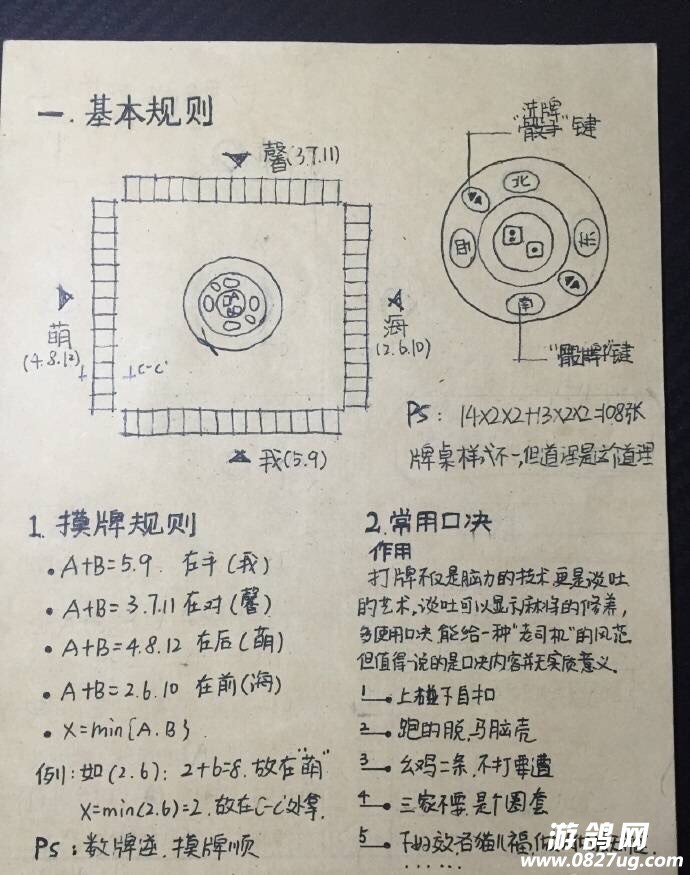 一.基本规则
馨(3.7.11)
萌
(4.8.12)
C-C'
海
(2.6.10)
我(5.9)
洗牌
"骰子"键
北
东
南
"骰牌"键
PS: 14×2×2+13×2×2=108张
牌桌样式不一,但道理是这个道理
1.摸牌规则
• A+B=5.9. 在手(我)
• A+B=3.7.11在对(馨)
• A+B=4.8.12 在后(萌)
• A+B=2.6.10 在前(海)
• X=min{A.B}
例:如(2.6):2+6=8.放在"萌"
X=min(2.6)=2.放在C-C'处拿.
PS:数牌逆.摸牌顺
2.常用口决
作用
打牌不仅是脑力的技术更是谈吐
的艺术,谈吐可以显示麻将的修养,
多使用口决能给一种"老司机"的风范
但值得一说的是口决内容并无实质意义.
1 上碰下自扣
2 跑的脱,马脑壳
3 幺鸡二条,不打要遭
4 三家不要,是个圈套
5
......
游鸽网
www.0827ug.com